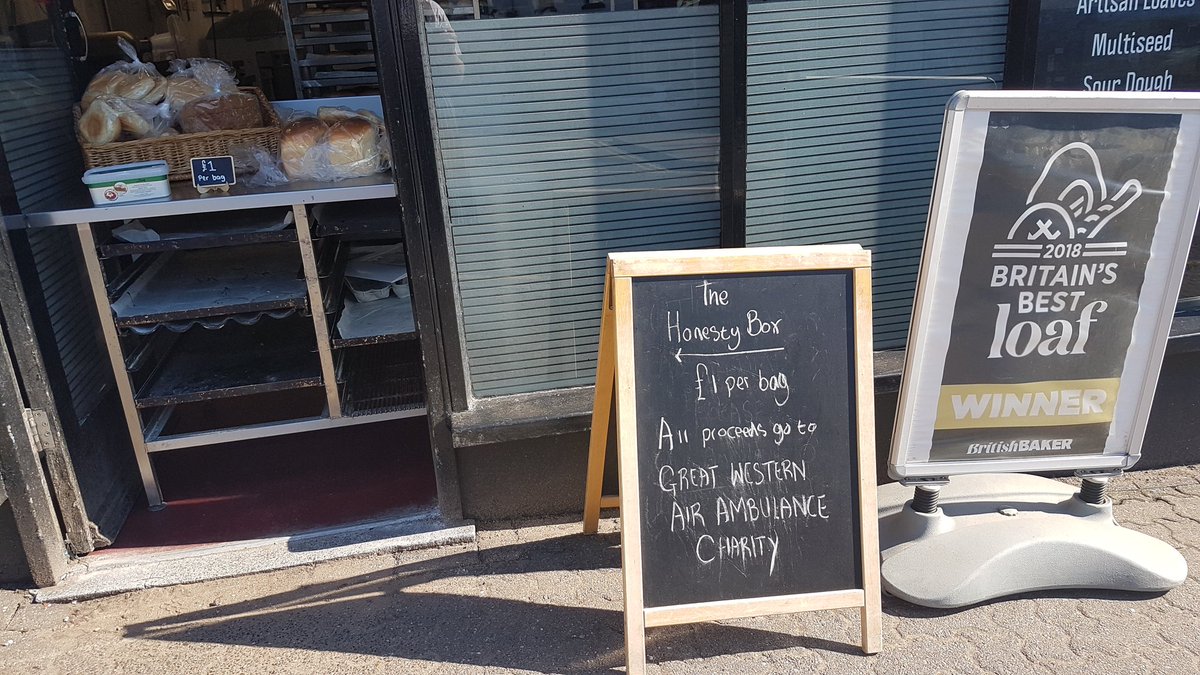 Artisan Loaves
Multiseed
Sour Dough
£1
Per bag
The
Honesty Box
£1 per bag
All proceeds go to
GREAT WESTERN
AIR AMBULANCE
CHARITY
2018
BRITAIN'S
BEST
loaf
WINNER
British BAKER